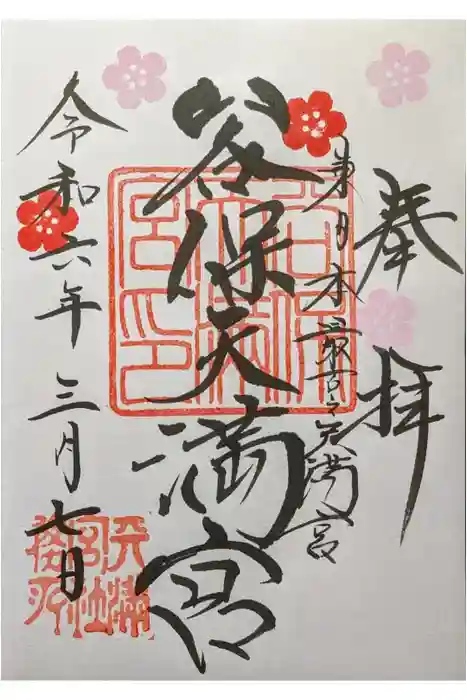 奉拝
東日本最古之天満宮
谷保天満宮
令和六年三月七日
谷保天満宮印
天満宮社務所